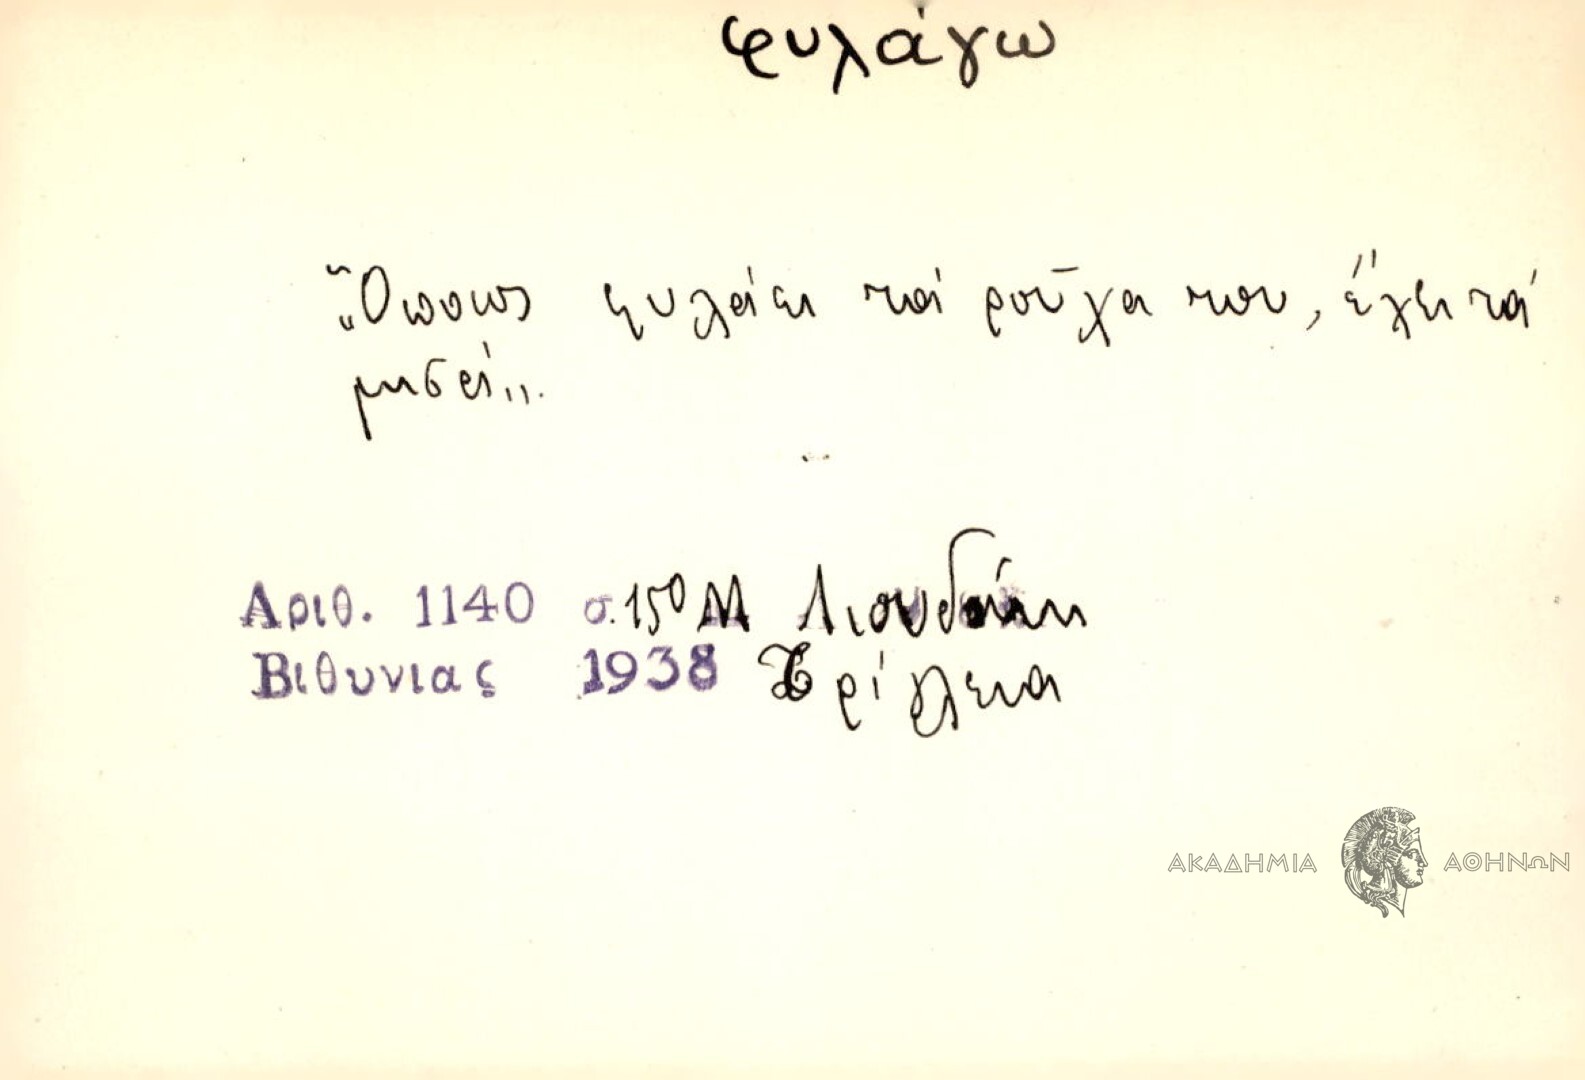 φυλάγω
„Ὅποιος φυλάει τά ροῦχα του, ἔχει τά
μισά„.
Αριθ. 1140 σ. 150 Μ Λιουδάκη
Βιθυνιας 1938 Τρίγλεια
ΑΚΑΔΗΜΙΑ ΑΘΗΝΩΝ